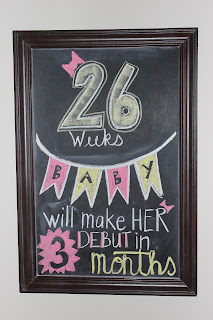 26
Weeks
BABY
will make HER
3 DEBUT in
months